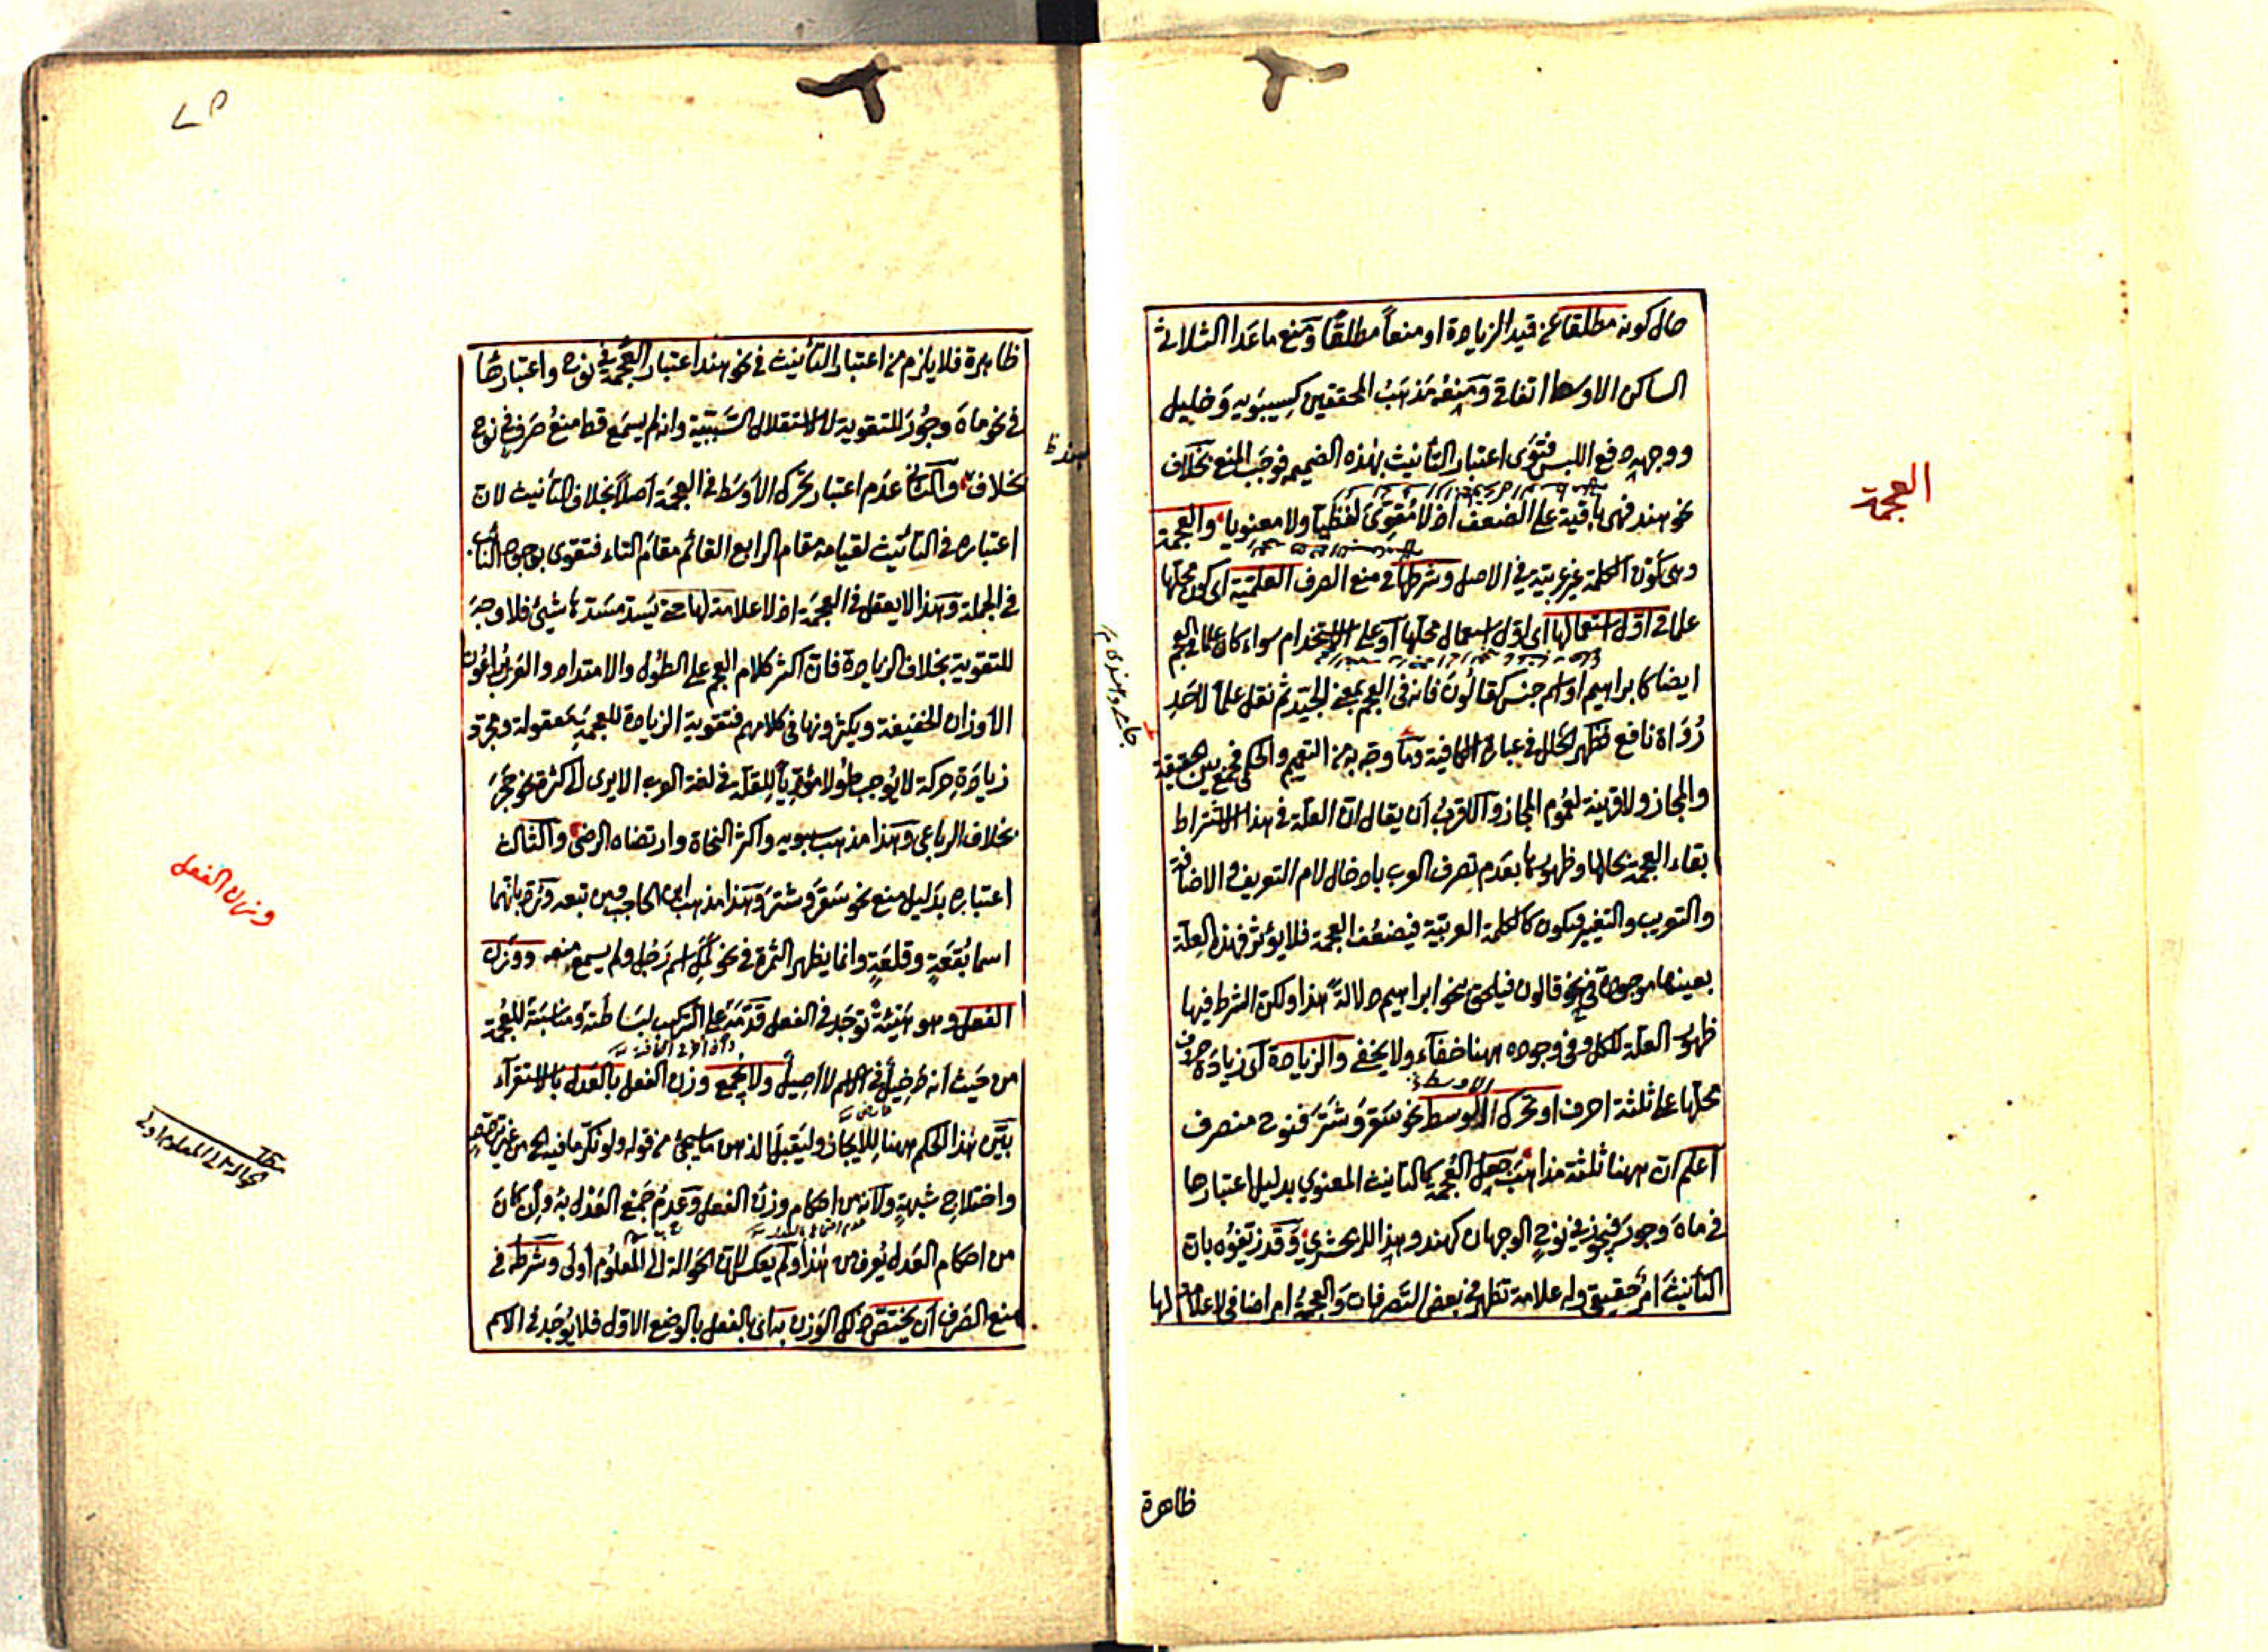 حال كونه مطلقا عن قيد الزيادة او منعاً مطلقًا ومنع ماعدا الثلاثي
الساكن الاوسط اتفاقي ومنعه مذهب المحققين كسيبويه وخليل
ووجهه دفع اللبس فتقوى اعتبار التأنيث بهذه الضميمة فوجب المنع بخلاف
نحو هند فهى باقية على الضعف اذ لا مقوى لفظيا ولا معنويا والعجمة
وهى كون الكلمة غير عربية في الاصل وشرطها في منع الصرف العلمية اى كون محلها
علما في اول استعمالها اى اول استعمال محلها او على الاستخدام سواء كان علما في العجم
ايضا كابراهيم او اسم جنس كقالون فانه في العجم بمعنى الجيد ثم نقل علما لاحد
رواة نافع فظهر الخلل في عبارة الكافية وما وجه به من التعميم والحكمى فجمع بين الحقيقة
والمجاز ولا قرينة لعموم المجاز والاقرب ان يقال ان العلة في هذا الاشتراط
بقاء العجمة بحالها وظهورها بعدم تصرف العرب بادخال لام التعريف والاضافة
والتعريب والتغيير فيكون كالكلمة العربية فيضعف العجمة فلا يؤثر فهذه العلة
بعينها موجودة في نحو قالون فيلحق بنحو ابراهيم دلالة هذا ولكن الشرط فيها
ظهور العلة للكل وفي وجوده ههنا خفاء ولا يخفى والزيادة اى زيادة حروف
محلها على ثلثة احرف او تحرك الاوسط نحو سقر وشتر فنوح منصرف
اعلم ان ههنا ثلثة مذاهب جعل العجمة كالتأنيث المعنوي بدليل اعتبارها
في ماه وجور فيجوز في نوح الوجهان كهند وهذا للزمخشري وقد زيفوه بان
التأنيث امر حقيقي وله علامة تظهر في بعض التصرفات والعجمة امر اضافي لا علامة لها
العجمة
ظاهرة
ظاهرة فلا يلزم من اعتبار التأنيث في نحو هند اعتبار العجمة في نوح واعتبارها
في نحو ماه وجور للتقوية لا لاستقلال السببية وانه لم يسمع قط منع صرف نوح
بخلاف هند والثاني عدم اعتبار تحرك الاوسط في العجمة اصلاً بخلاف التأنيث لان
اعتباره في التأنيث لقيامه مقام الرابع القائم مقام التاء فتقوى بوجود النائب
في الجملة وهذا لا يعقل في العجمة اذ لا علامة لها حتى يسد مسدها شيئ فلا وجه
للتقوية بخلاف الزيادة فان اكثر كلام العجم على الطول والامتداد والعرب يراعون
الاوزان الخفيفة ويكثرونها في كلامهم فتقوية الزيادة للعجمة معقولة ومجرد
زيادة حركة لا يوجب طولا مؤديا للقلة في لغة العرب الا يرى الى كثرة نحو حجر
بخلاف الرباعي وهذا مذهب سيبويه واكثر النحاة وارتضاه الرضي والثالث
اعتباره بدليل منع نحو سقر وشتر وهذا مذهب ابن الحاجب ومن تبعه ورد بانهما
اسما بقعة وقلعة وانما يظهر الثمرة في نحو لمك اسم رجل ولم يسمع منعه ووزن
الفعل وهو هيئة توجد في الفعل قدمه على التركيب لبساطته ومناسبته للعجمة
من حيث انه دخيل في الاسم لا اصيل ولا يجمع وزن الفعل بالعدل بالاستقراء
بين هذا الحكم ههنا للايجاز وليتقبل الذهن ما سيجئ من قوله ولو نكر ما فيه الخ من غير
واختلاج شبهة ولانه من احكام وزن الفعل وعدم جمع العدل به وان كان
من احكام العدل يعرف من هذا ولم يعكس لان الحوالة الى المعلوم اولى وشرطه في
منع الصرف ان يختص ذلك الوزن بداى بالفعل بالوضع الاول فلا يوجد في الاسم
وزن الفعل